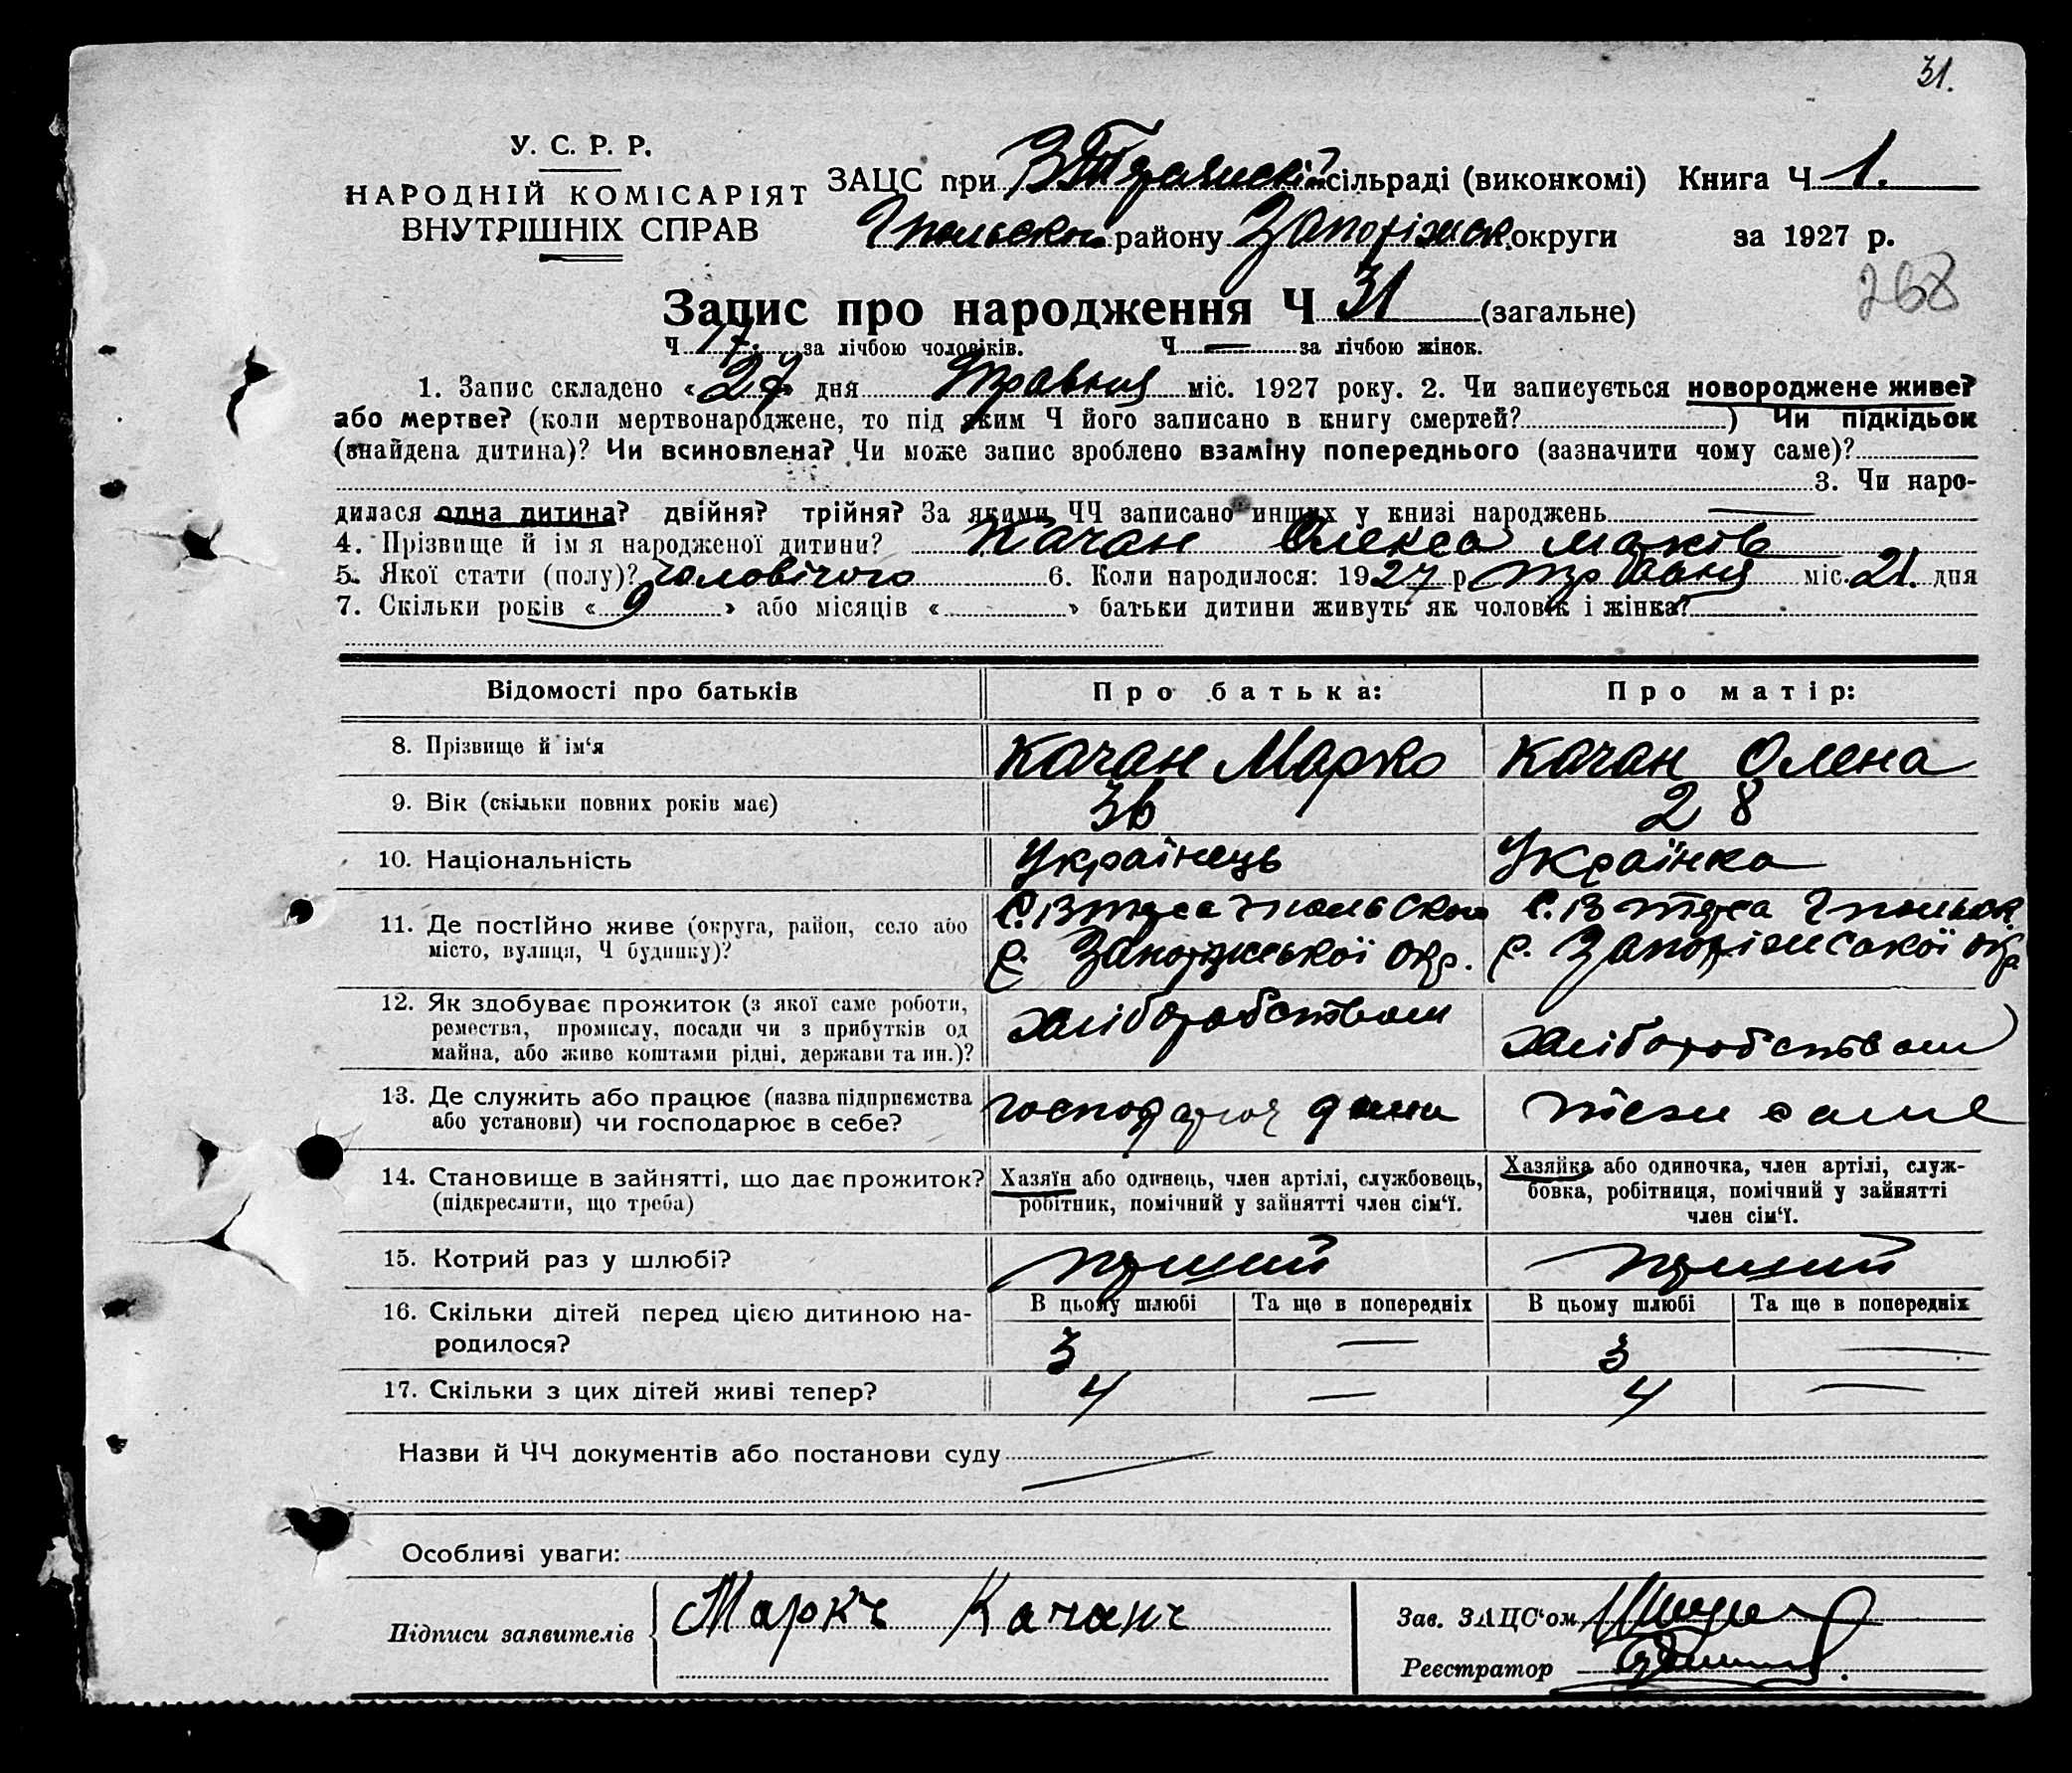 31.
У. С. Р. Р.
НАРОДНІЙ КОМІСАРІЯТ
ВНУТРІШНІХ СПРАВ
ЗАЦС при сільраді (виконкомі) Книга Ч 1.
району Запоріжск. округи за 1927 р.
268
Запис про народження Ч 31 (загальне)
Ч 17. за лічбою чоловіків. Ч — за лічбою жінок.
1. Запис складено «27» дня травня міс. 1927 року. 2. Чи записується новороджене живе?
або мертве? (коли мертвонароджене, то під яким Ч його записано в книгу смертей? ) Чи підкідьок
(знайдена дитина)? Чи всиновлена? Чи може запис зроблено взаміну попереднього (зазначити чому саме)?
3. Чи наро-
дилася одна дитина? двійня? трійня? За якими ЧЧ записано инших у книзі народжень —
4. Прізвище й імя народженої дитини? Качан Олекса Марків
5. Якої стати (полу)? чоловічого 6. Коли народилося: 1927 р. травня міс. 21. дня
7. Скільки років «9» або місяців « » батьки дитини живуть як чоловік і жінка?
Відомості про батьків
Про батька:
Про матір:
8. Прізвище й ім‘я
Качан Марко
Качан Олена
9. Вік (скільки повних років має)
36
28
10. Національність
Українець
Українка
11. Де постійно живе (округа, район, село або
місто, вулиця, Ч будинку)?
р. Запоріжської окр.
р. Запоріжської окр
12. Як здобуває прожиток (з якої саме роботи,
ремества, промислу, посади чи з прибутків од
майна, або живе коштами рідні, держави та ин.)?
хліборобством
хліборобством
13. Де служить або працює (назва підприємства
або установи) чи господарює в себе?
14. Становище в зайнятті, що дає прожиток?
(підкреслити, що треба)
Хазяїн або одинець, член артілі, службовець,
робітник, помічний у зайнятті член сім‘ї.
Хазяйка або одиночка, член артілі, служ-
бовка, робітниця, помічний у зайнятті
член сім‘ї.
15. Котрий раз у шлюбі?
перший
перший
16. Скільки дітей перед цією дитиною на-
родилося?
В цьому шлюбі
Та ще в попередніх
В цьому шлюбі
Та ще в попередніх
3 — 3 —
17. Скільки з цих дітей живі тепер?
4 — 4 —
Назви й ЧЧ документів або постанови суду
Особливі уваги:
Підписи заявителів
Маркъ Качанъ
Зав. ЗАЦС‘ом
Реєстратор